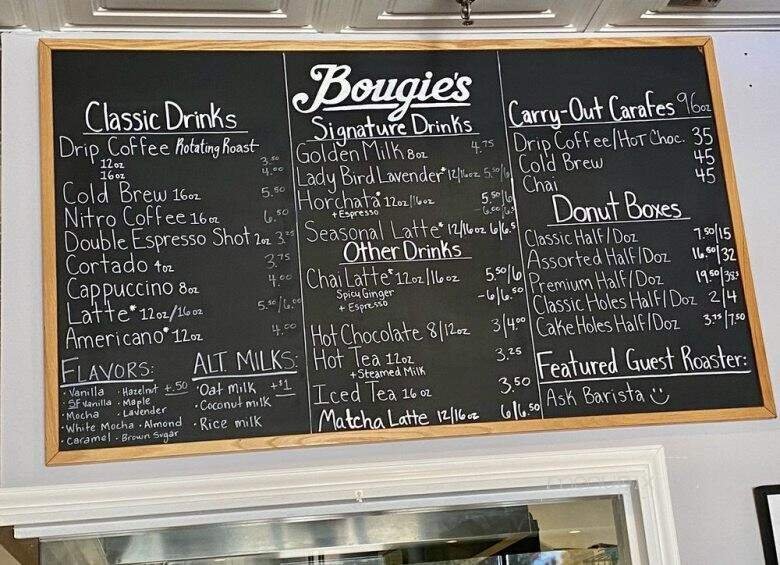 Bougie's
Classic Drinks
Drip Coffee Rotating Roast
12oz 3.50
16oz 4.00
Cold Brew 16oz 5.50
Nitro Coffee 16oz 6.50
Double Espresso Shot 2oz
Cortado 4oz 3.75
Cappuccino 8oz 4.00
Latte* 12oz/16oz 5.50/6.00
Americano* 12oz 4.00
FLAVORS: +.50
· Vanilla · Hazelnut
· SF Vanilla · Maple
· Mocha · Lavender
· White Mocha · Almond
· Caramel · Brown Sugar
ALT. MILKS: +$1
· Oat milk
· Coconut milk
· Rice milk
Signature Drinks
Golden Milk 8oz 4.75
Lady Bird Lavender* 12/16oz
Horchata* 12oz/16oz 5.50/6
+ Espresso
Seasonal Latte* 12/16oz 6/6.5
Other Drinks
Chai Latte* 12oz/16oz 5.50/6
Spicy Ginger
+ Espresso -6/6.50
Hot Chocolate 8/12oz 3/4.00
Hot Tea 12oz 3.25
+ Steamed Milk
Iced Tea 16oz 3.50
Matcha Latte 12/16oz 6/6.50
Carry-Out Carafes 96oz
Drip Coffee/Hot Choc. 35
Cold Brew 45
Chai 45
Donut Boxes
Classic Half/Doz 7.50/15
Assorted Half/Doz 16.50/32
Premium Half/Doz
Classic Holes Half/Doz 2/4
Cake Holes Half/Doz 3.75/7.50
Featured Guest Roaster:
Ask Barista